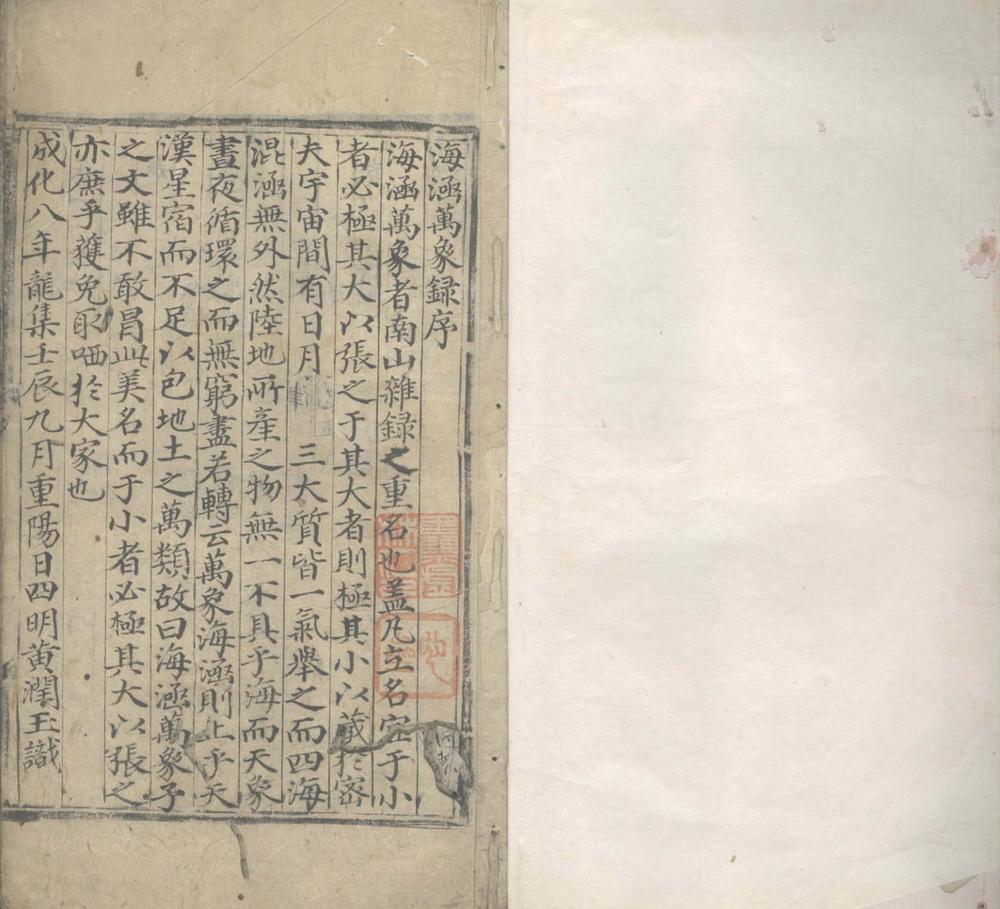 海涵萬象録序
海涵萬象者南山雜録之重名也蓋凡立名宜于小
者必極其大以張之于其大者則極其小以藏於密
夫宇宙間有日月 三大質皆一氣舉之而四海
混涵無外然陸地所產之物無一不具乎海而天象
晝夜循環之而無窮盡若轉云萬象海涵則上乎天
漢星宿而不足以包地土之萬類故曰海涵萬象予
之文雖不敢冒此美名而于小者必極其大以張之
亦庶乎獲免取哂於大家也
成化八年龍集壬辰九月重陽日四明黄潤玉識